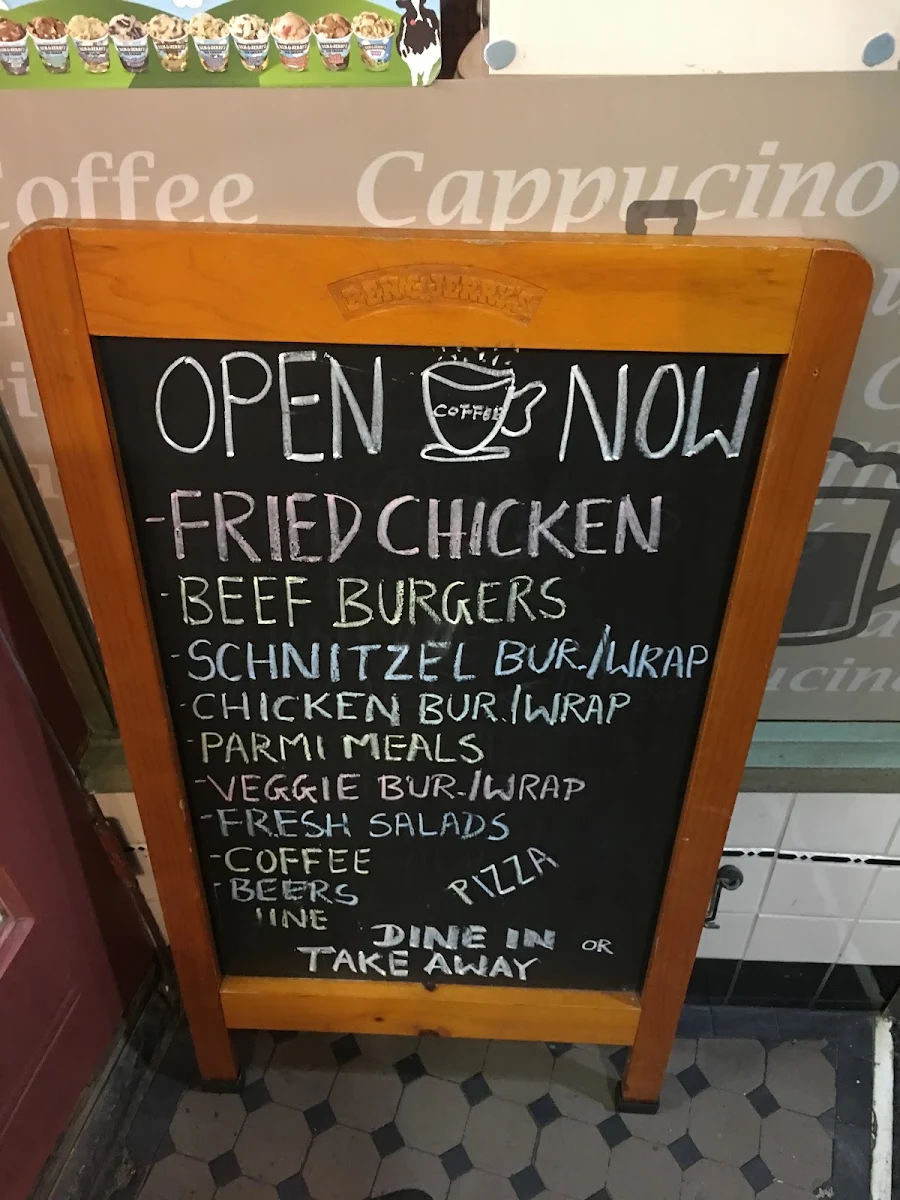 Coffee Cappucino
BEN & JERRY'S
OPEN COFFEE NOW
-FRIED CHICKEN
-BEEF BURGERS
-SCHNITZEL BUR./WRAP
-CHICKEN BUR./WRAP
-PARMI MEALS
-VEGGIE BUR./WRAP
-FRESH SALADS
-COFFEE
-BEERS
PIZZA
DINE IN OR
TAKE AWAY